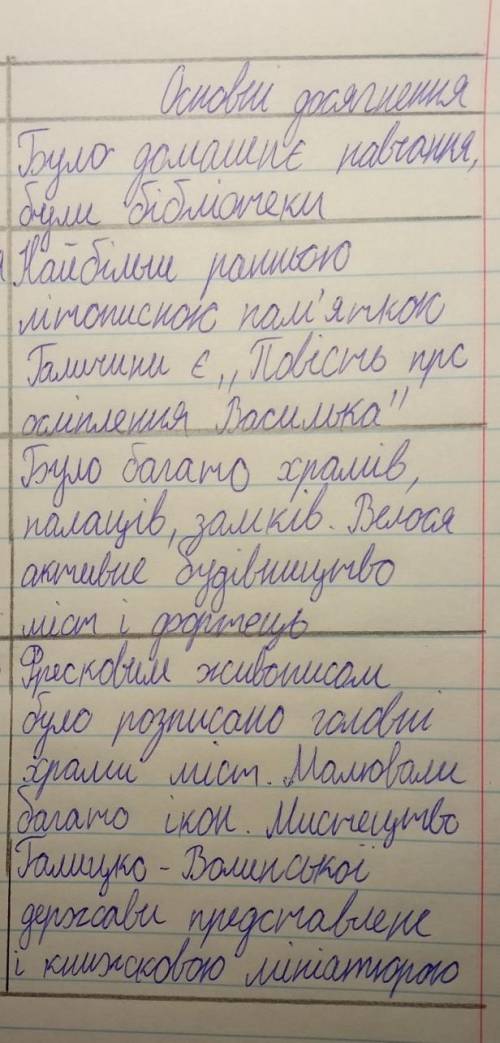 Основні досягнення
Було домашнє навчання,
були бібліотеки
Найбільш ранньою
літописною пам'яткою
Галичини є „Повість про
осліплення Василька"
Було багато храмів,
палаців, замків. Велося
активне будівництво
міст і фортець
Фресковим живописом
було розписано головні
храми міст. Малювали
багато ікон. Мистецтво
Галицко - Волинської
держави представлене
і книжковою мініатюрою